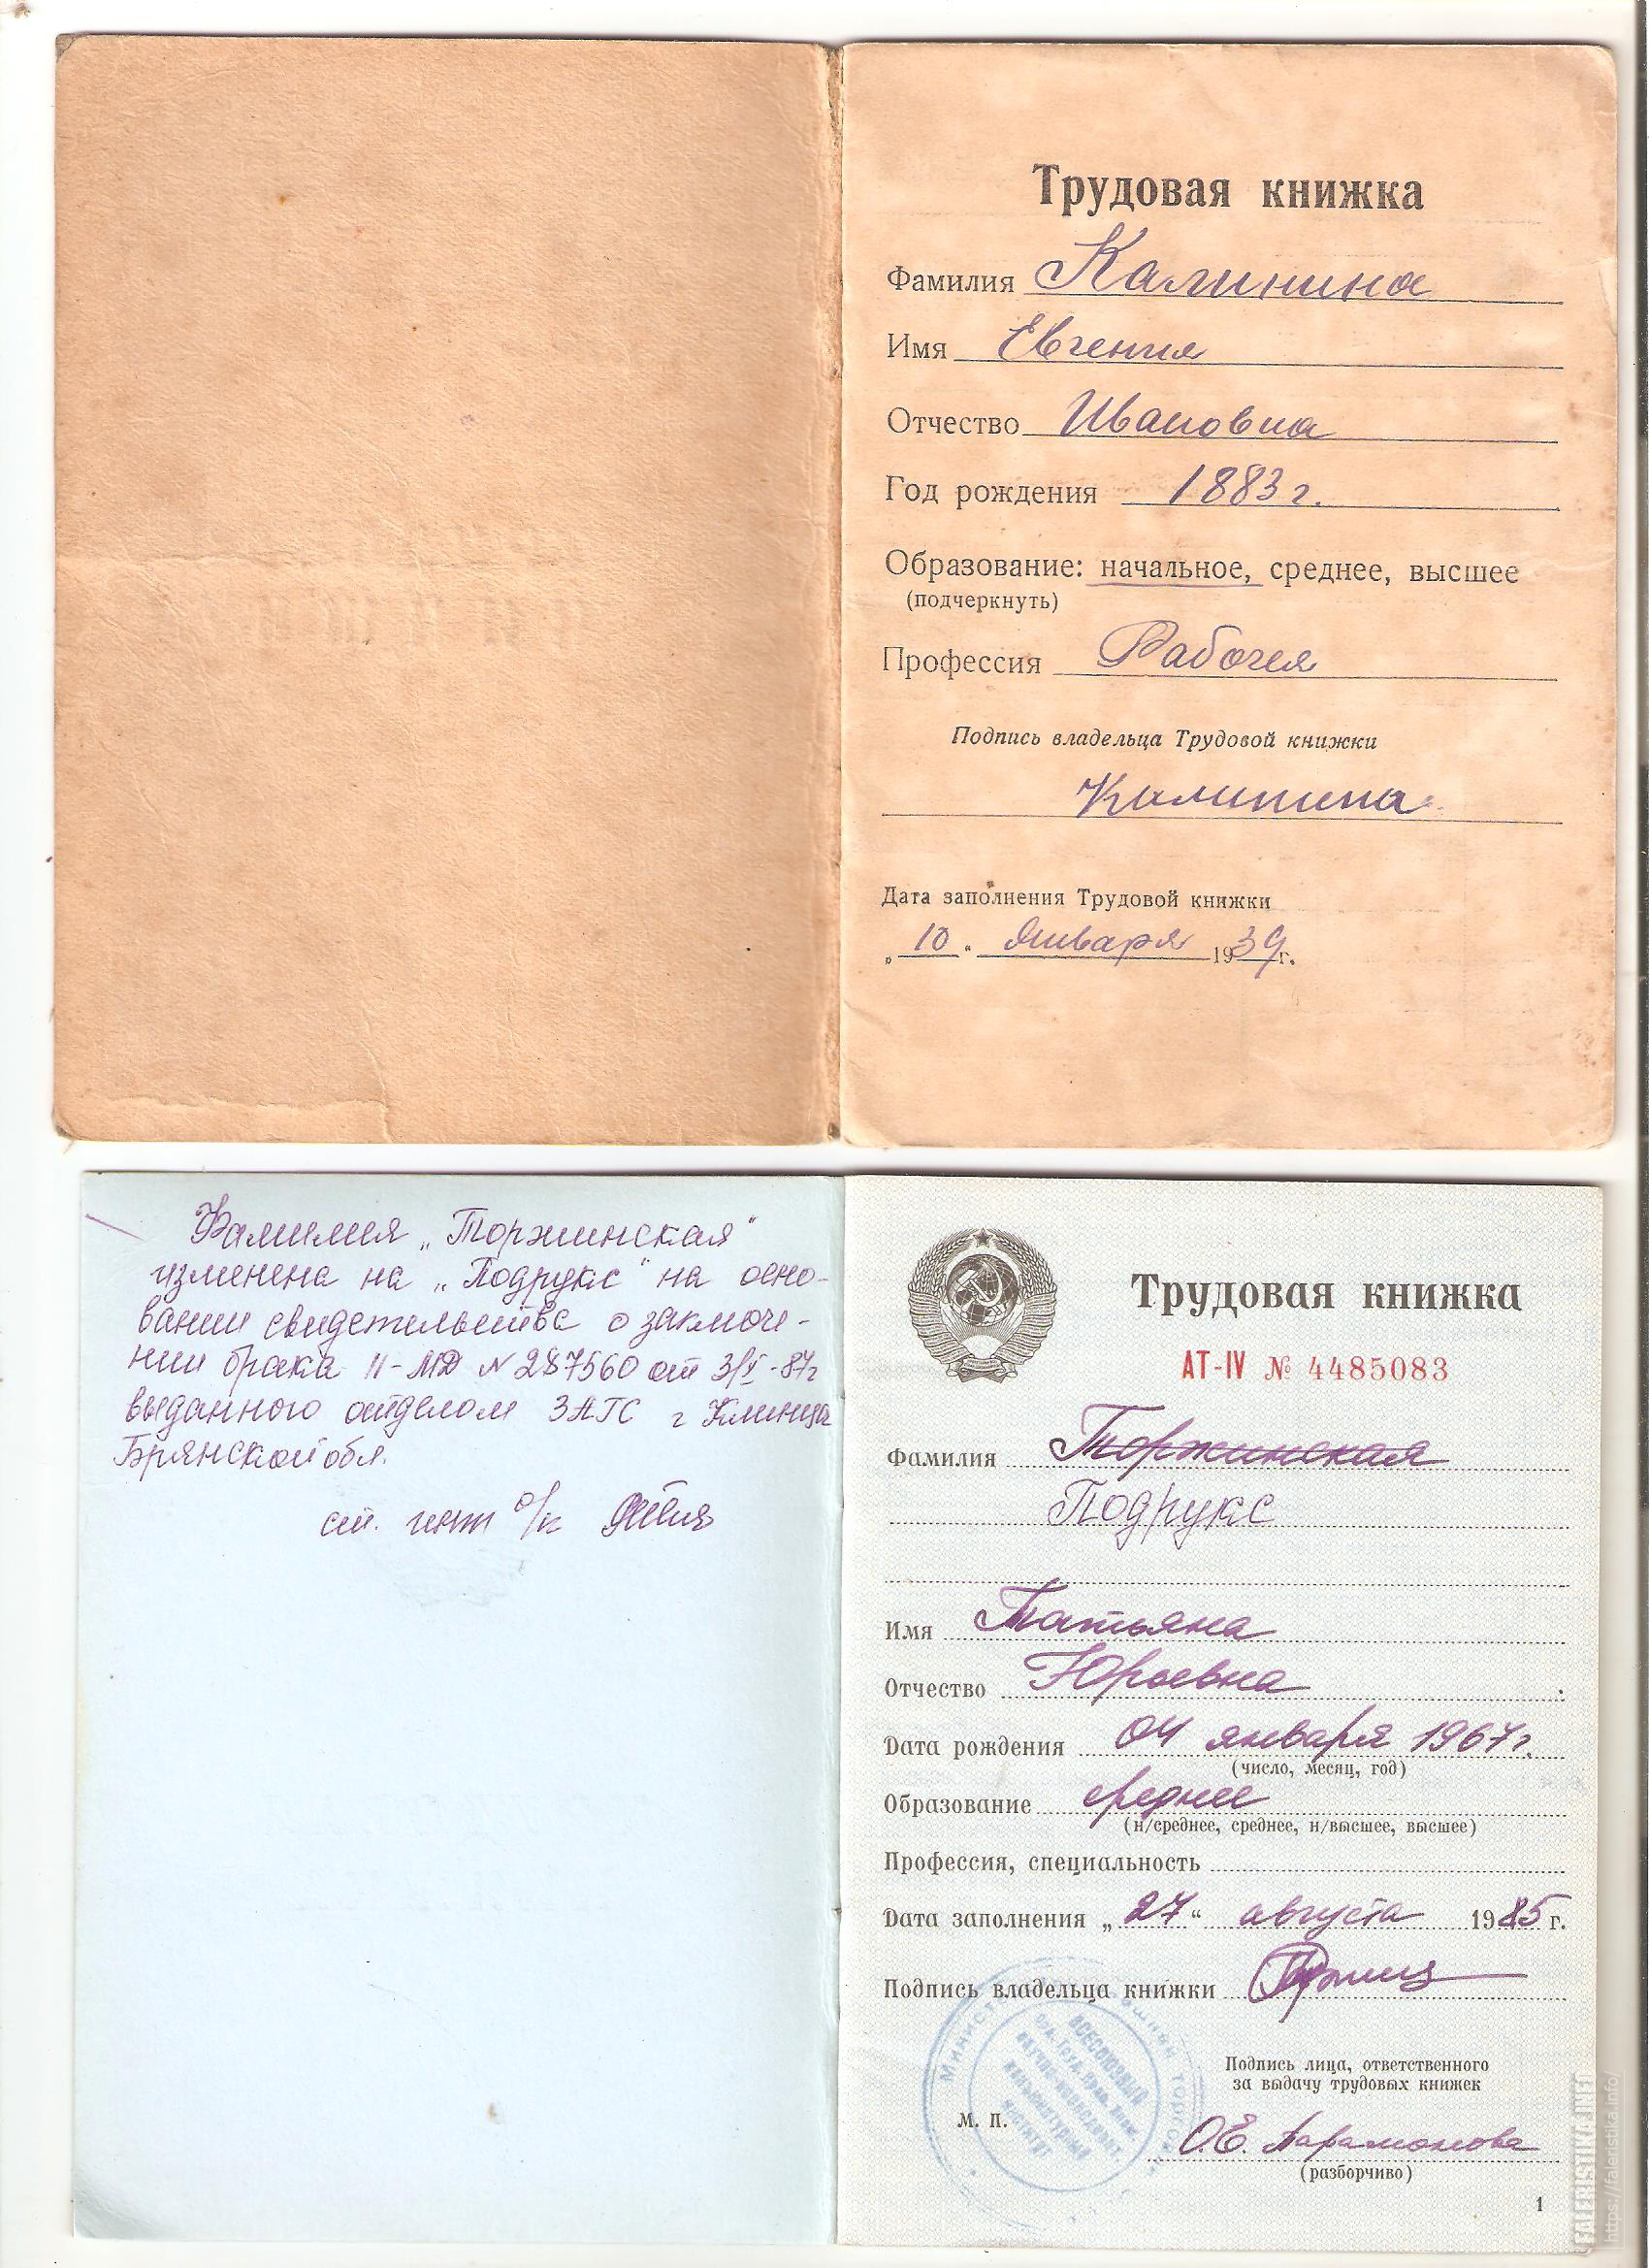 Трудовая книжка
Фамилия Калинина
Имя Евгения
Отчество Ивановна
Год рождения 1883 г.
Образование: начальное, среднее, высшее
(подчеркнуть)
Профессия Рабочая
Подпись владельца Трудовой книжки
Калинина
Дата заполнения Трудовой книжки
„10“ Января 1939 г.
Фамилия „Торжинская"
изменена на „Подрукс" на осно-
вании свидетельства о заключе-
нии брака II-МД N 287560 от 3/X-87г
выданного отделом ЗАГС г Клинцы
Брянской обл.
ст. инт о/к
Трудовая книжка
АТ-IV № 4485083
Фамилия Торжинская
Подрукс
Имя Татьяна
Отчество Юрьевна
Дата рождения 04 января 1967г.
(число, месяц, год)
Образование среднее
(н/среднее, среднее, н/высшее, высшее)
Профессия, специальность
Дата заполнения „27“ августа 1985 г.
Подпись владельца книжки
Подпись лица, ответственного
за выдачу трудовых книжек
М. П.
О.Е. Парамонова
(разборчиво)
1
ВСЕСОЮЗНЫЙ
КОНЪЮНКТУРНЫЙ
ИНСТИТУТ
FALERISTIKA.INFO
https://faleristika.info/